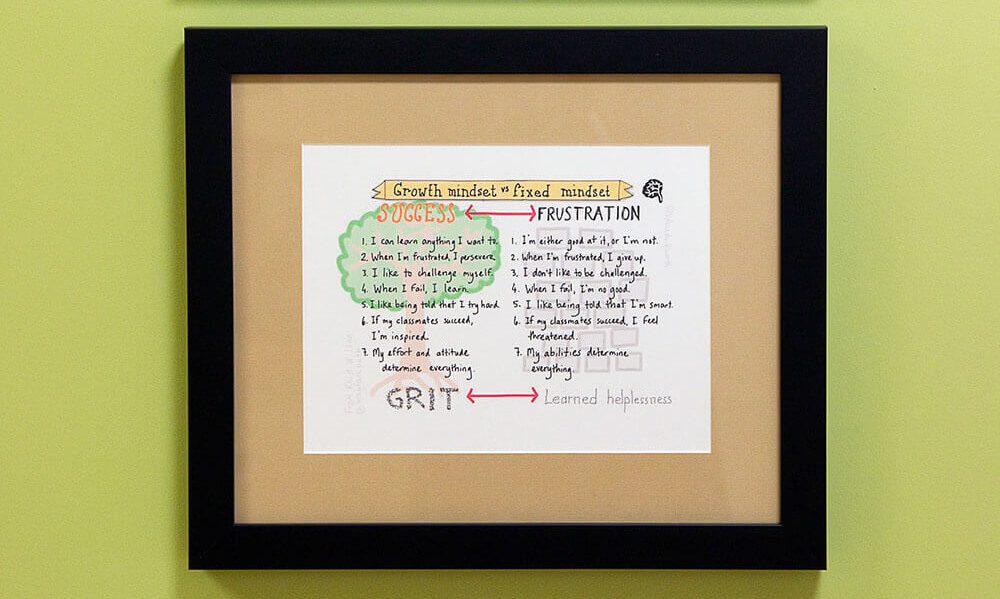 Growth mindset vs fixed mindset
SUCCESS
1. I can learn anything I want to.
2. When I'm frustrated, I persevere.
3. I like to challenge myself.
4. When I fail, I learn.
5. I like being told that I try hard.
6. If my classmates succeed,
I'm inspired.
7. My effort and attitude
determine everything.
GRIT
FRUSTRATION
1. I'm either good at it, or I'm not.
2. When I'm frustrated, I give up.
3. I don't like to be challenged.
4. When I fail, I'm no good.
5. I like being told that I'm smart.
6. If my classmates succeed, I feel
threatened.
7. My abilities determine
everything.
Learned helplessness